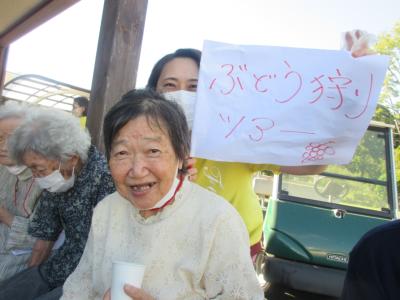 ぶどう狩り
ツアー
HITACHI